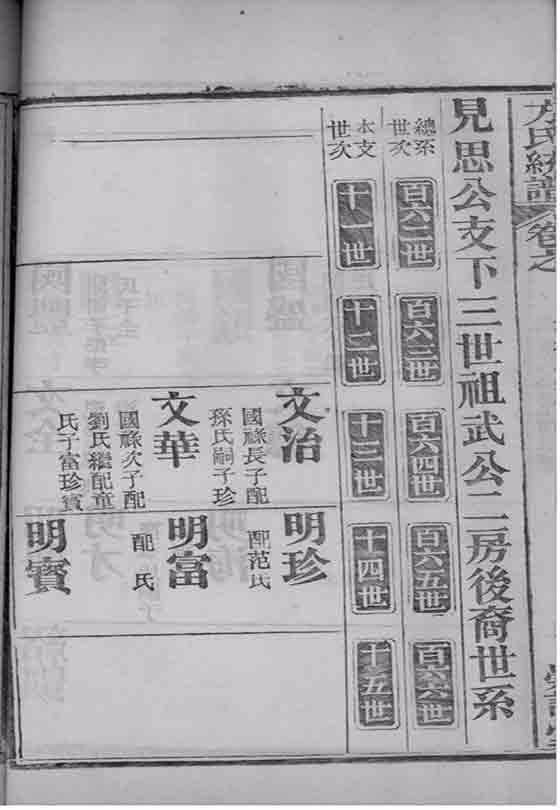 方氏統譜
卷之
見思公支下三世祖武公二房後裔世系
總系世次
百六二世
百六三世
百六四世
百六五世
百六六世
本支世次
十一世
十二世
十三世
十四世
十五世
文治
國祿長子配
孫氏嗣子珍
文華
國祿次子配
劉氏繼配童
氏子富珍賓
明珍
配范氏
明富
配 氏
明賓